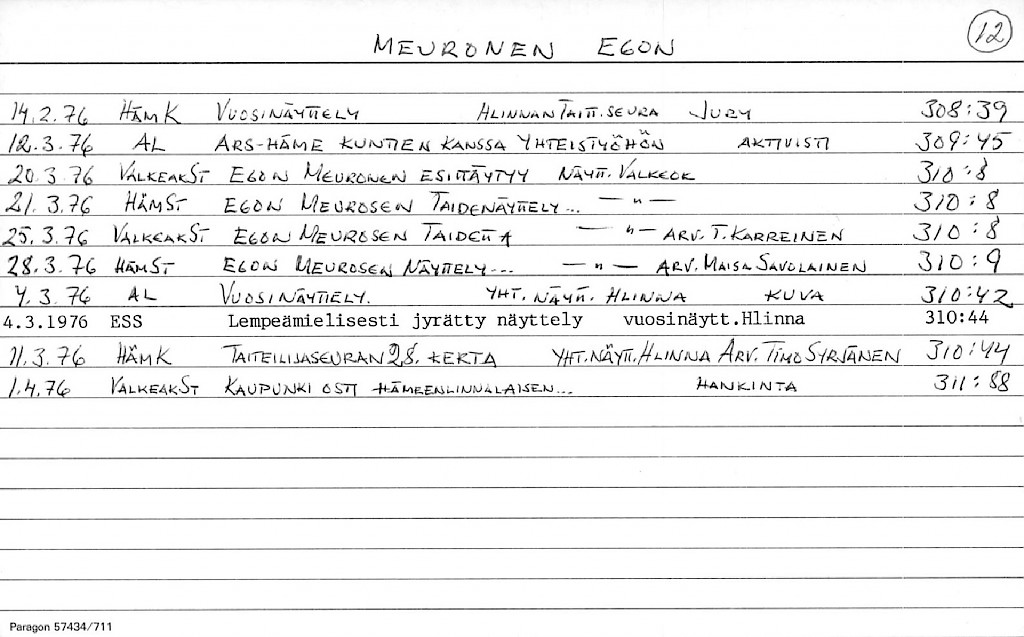 MEURONEN EGON 12
14.2.76 HÄMK VUOSINÄYTTELY HLINNAN TAIT.SEURA JURY 308:39
12.3.76 AL ARS-HÄME KUNTIEN KANSSA YHTEISTYÖHÖN AKTIVISTI 309:45
20.3.76 VALKEAKST EGON MEURONEN ESITTÄYTYY NÄYTT. VALKEOK 310:8
21.3.76 HÄMST EGON MEUROSEN TAIDENÄYTTELY... —"— 310:8
25.3.76 VALKEAKST EGON MEUROSEN TAIDETTA —"— ARV. T. KARREINEN 310:8
28.3.76 HÄMST EGON MEUROSEN NÄYTTELY... —"— ARV. MAISA SAVOLAINEN 310:9
4.3.76 AL VUOSINÄYTTELY. YHT. NÄYTT. HLINNA KUVA 310:42
4.3.1976 ESS Lempeämielisesti jyrätty näyttely vuosinäytt.Hlinna 310:44
11.3.76 HÄMK TAITEILIJASEURAN 28. KERTA YHT.NÄYTT. HLINNA ARV. TIMO SYRJÄNEN 310:44
1.4.76 VALKEAKST KAUPUNKI OSTI HÄMEENLINNALAISEN... HANKINTA 311:88
Paragon 57434/711